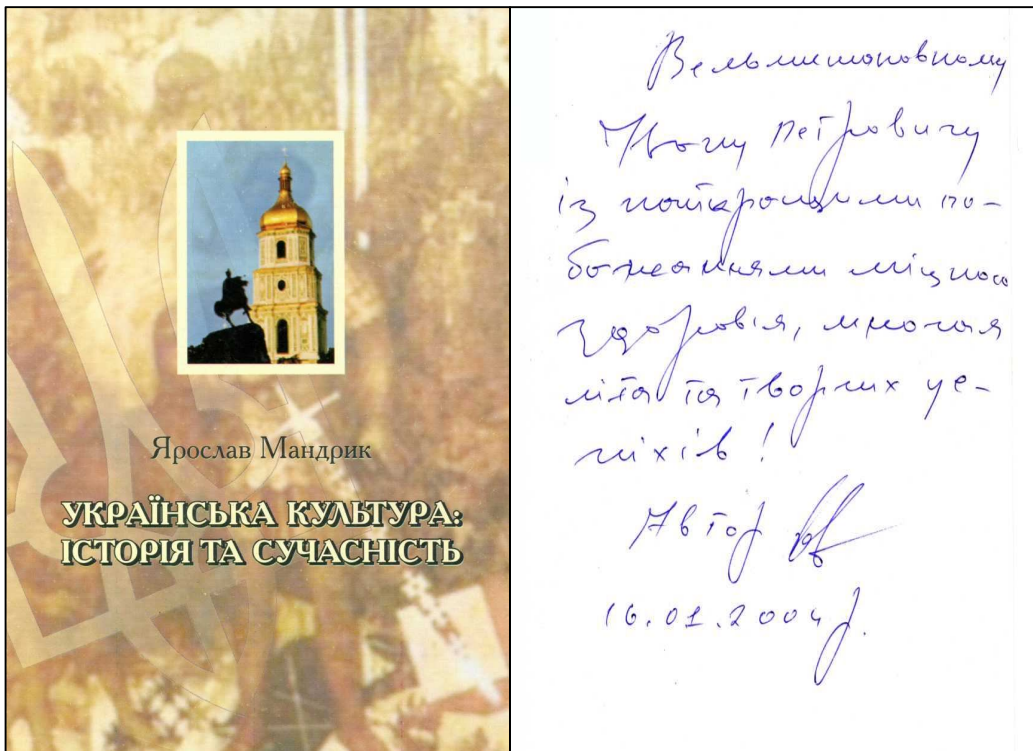 Ярослав Мандрик
УКРАЇНСЬКА КУЛЬТУРА:
ІСТОРІЯ ТА СУЧАСНІСТЬ
Вельмишановному
Івану Петровичу
із найкращими по-
бажаннями міцного
здоров'я, многая
літа та творчих ус-
піхів!
Автор
16.01.2004 р.